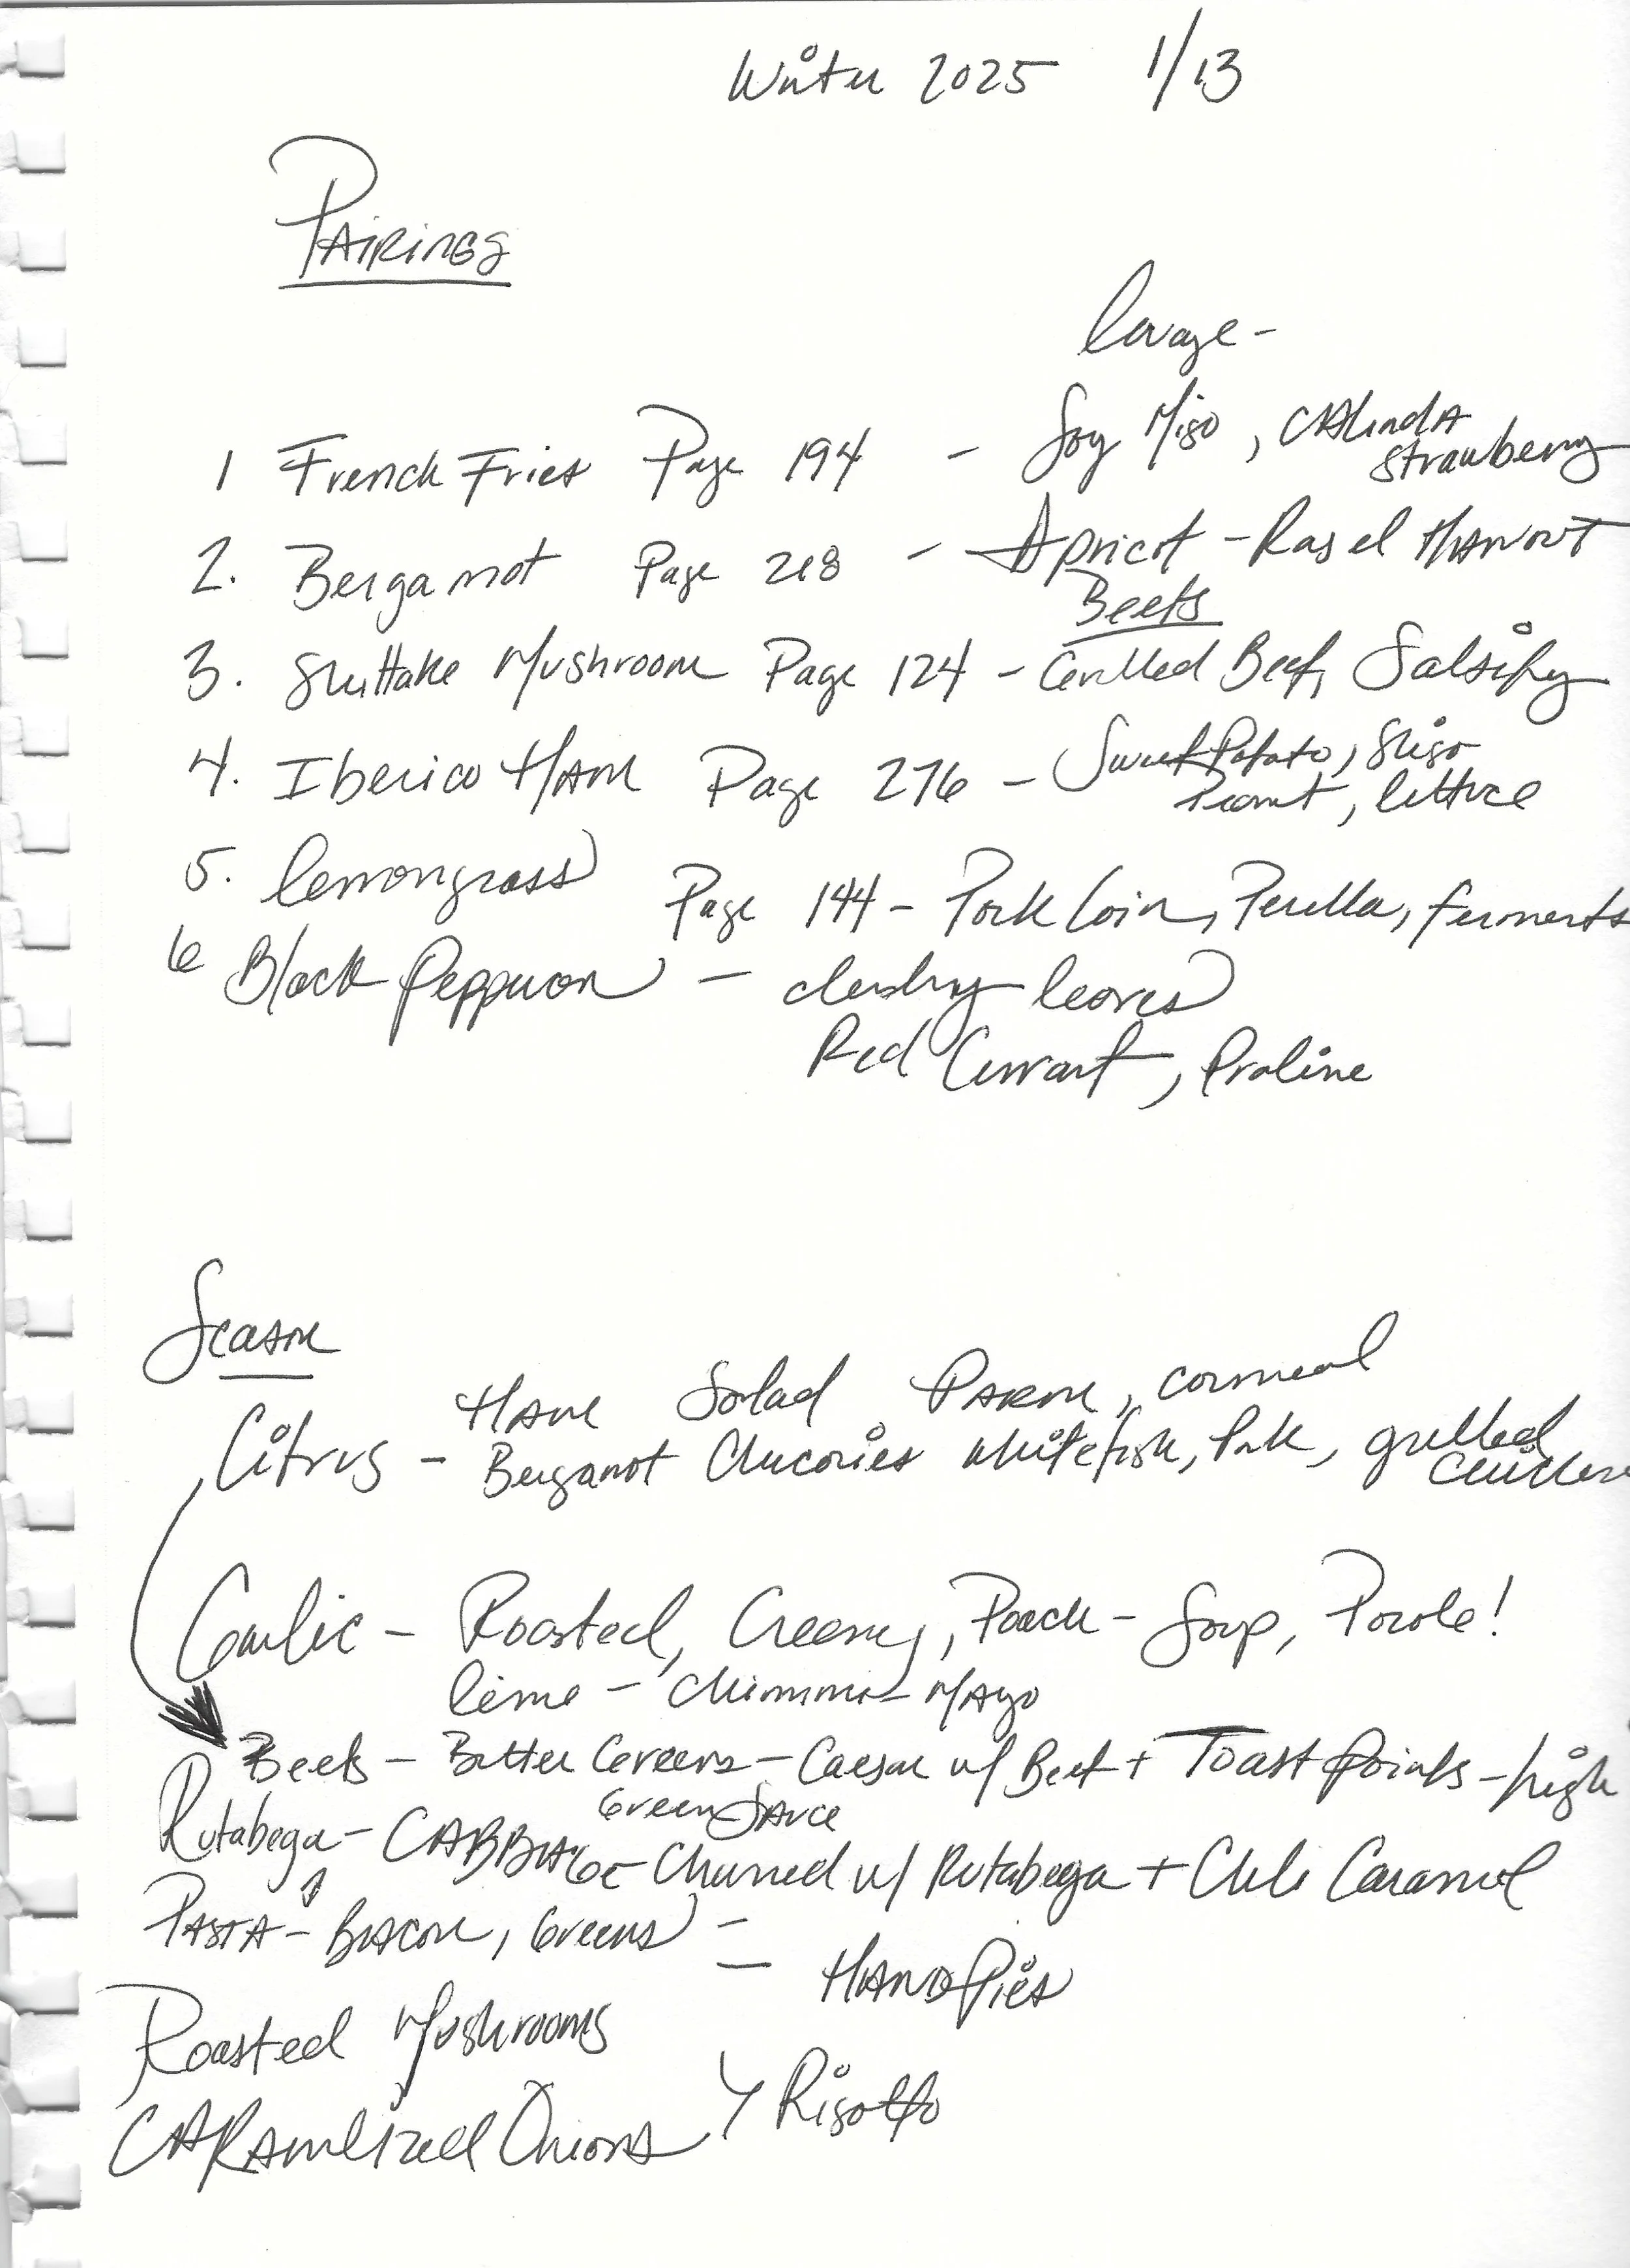 Winter 2025 1/13
Pairings
lovage -
1 French Fries Page 194 - Soy Miso, Calindia
strawberry
2. Bergamot Page 218 - Apricot - Ras el Hanout
Beets
3. Shiitake Mushroom Page 124 - Grilled Beef, Salsify
4. Iberico Ham Page 276 - Sweet Potato, Shiso
Peanut, lettuce
5. lemongrass Page 144 - Pork loin, Perilla, ferments
6 Black Peppercorn - leaves
Red Currant, Praline
Season
Ham Salad Parm, cornmeal
Citrus - Bergamot Chicories whitefish, Pork, grilled
chicken
Garlic - Roasted, Creamy, Poach - Soup, Pozole!
lime - Chimmi Mayo
Beets - Bitter Greens - Caesar w/ Beet + Toast Points - high
Green Sauce
Rutabega - CABBAGE - Churred w/ Rutabega + Chili Caramel
PASTA - BACON, Greens -
- HAND Pies
Roasted Mushrooms
CARAmelized Onions Y Risotto